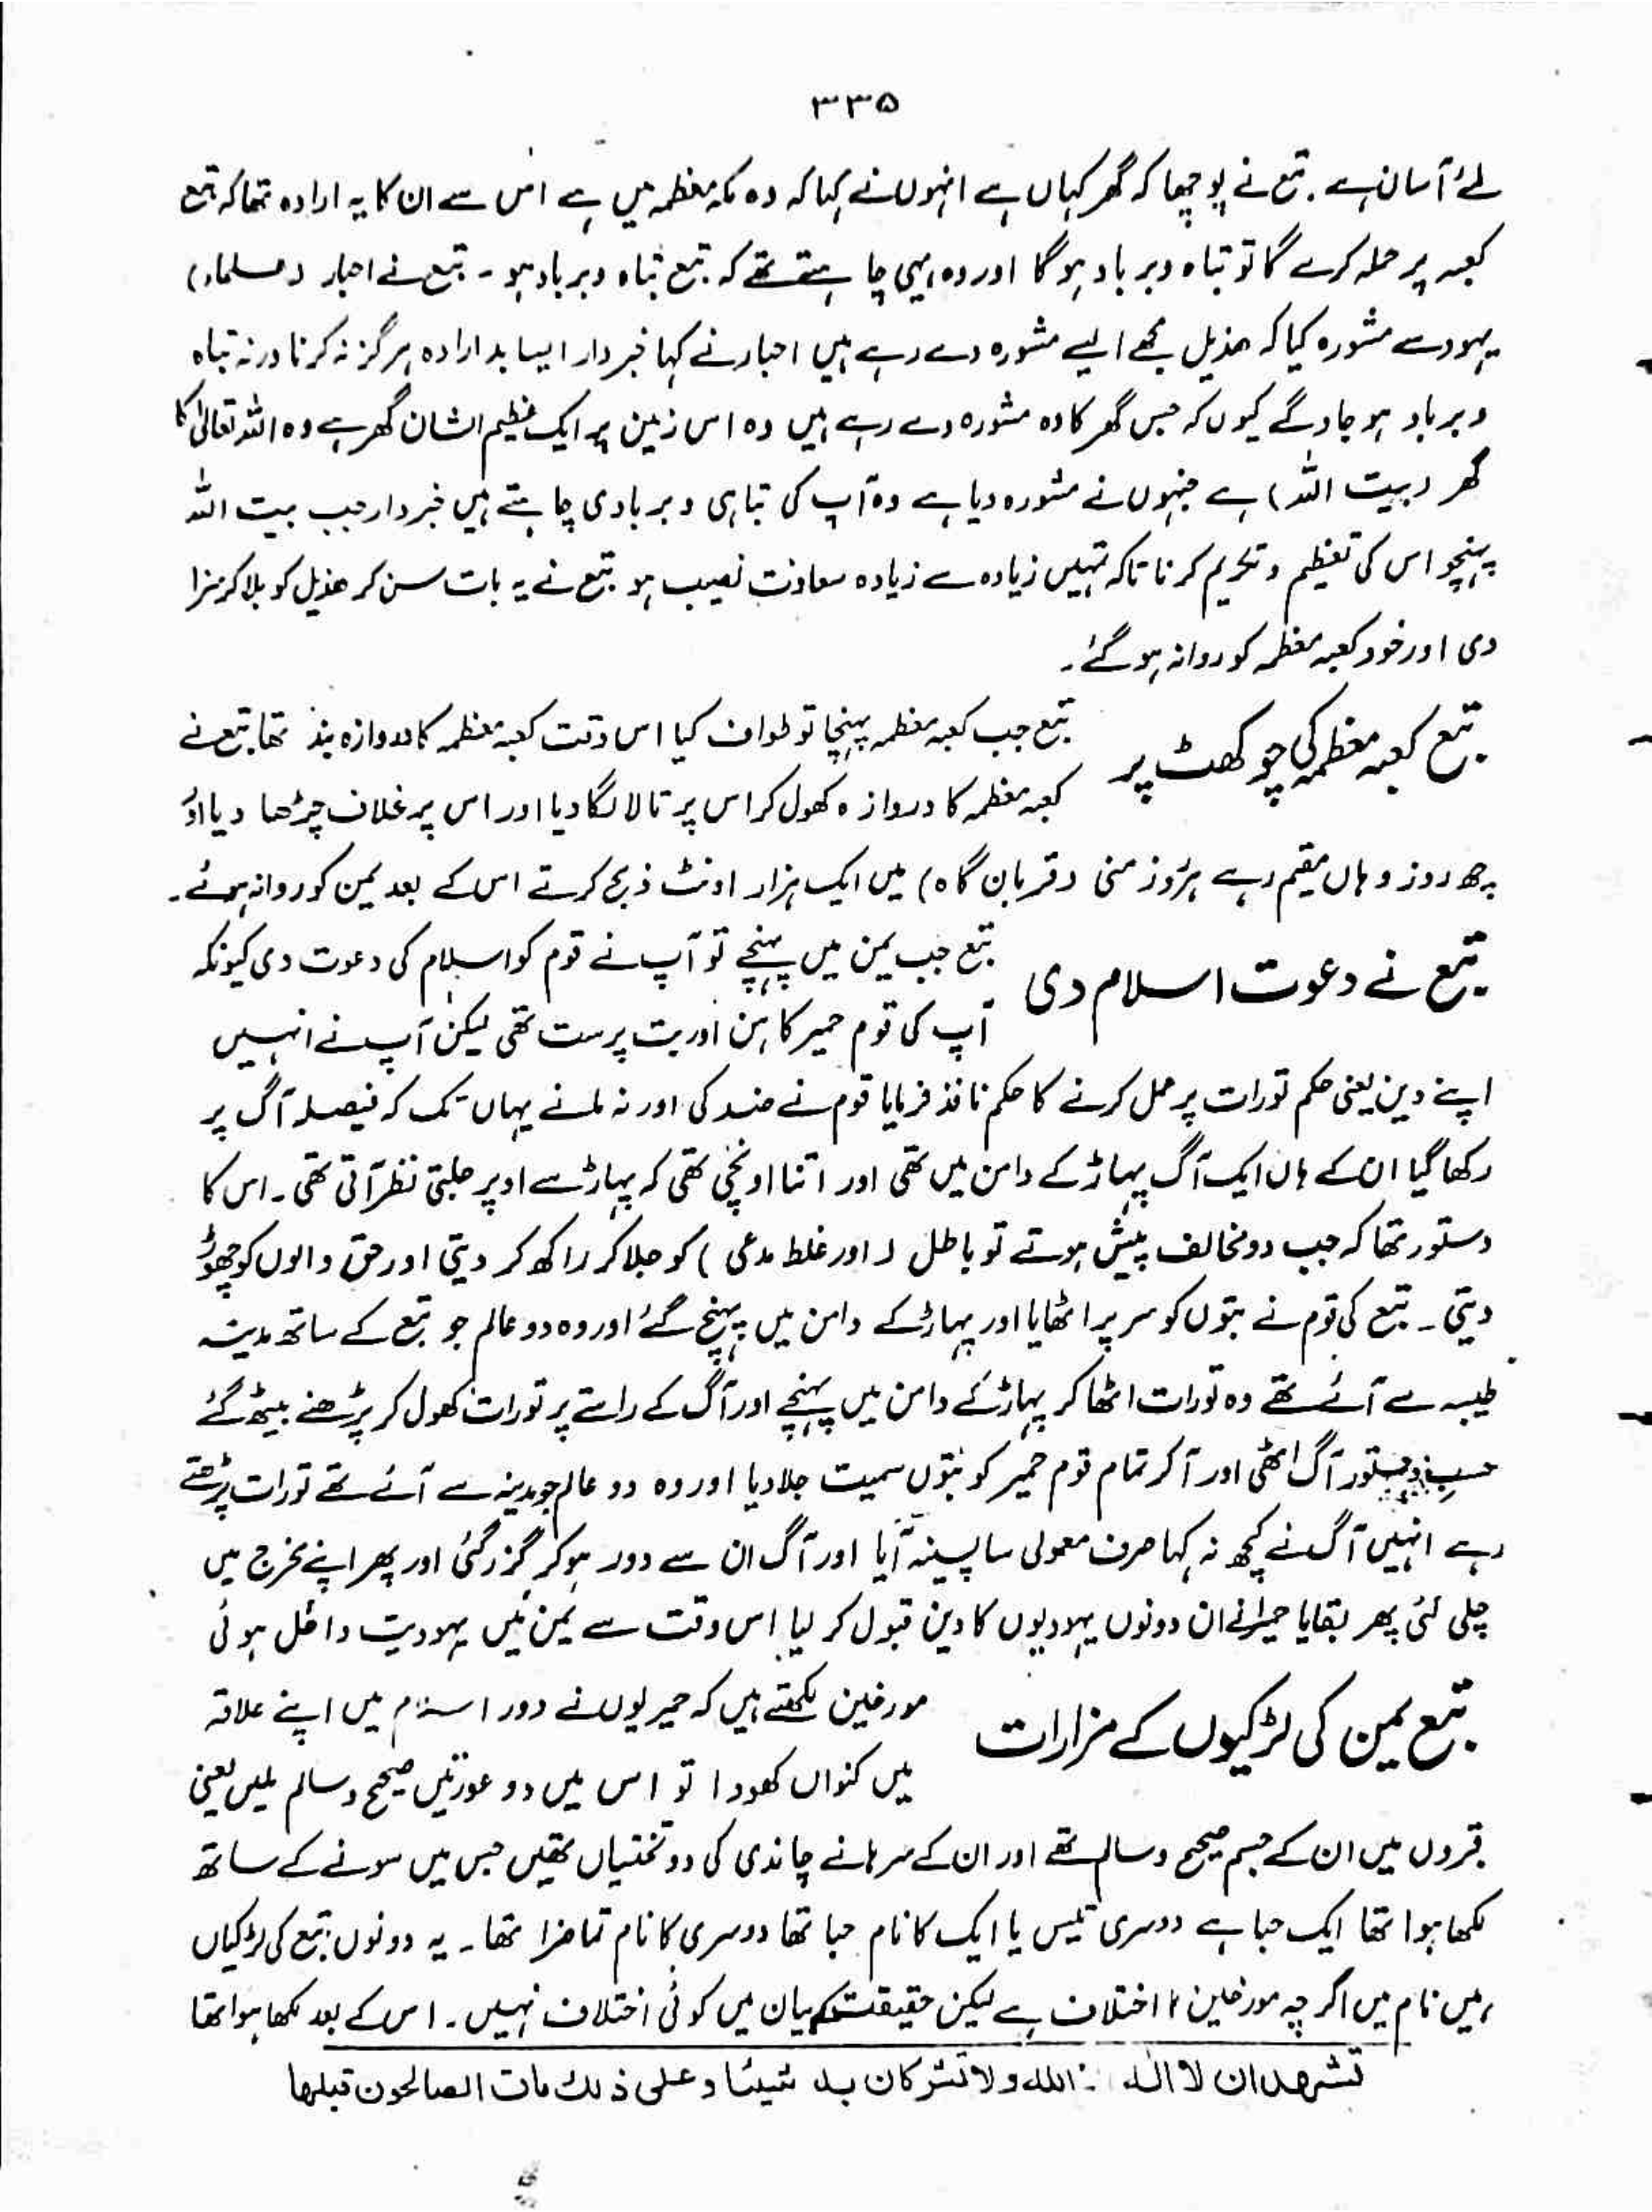 ۳۳۵
لئے آسان ہے۔ تبع نے پوچھا کہ گھر کہاں ہے انہوں نے کہا کہ وہ مکہ معظمہ میں ہے اس سے ان کا یہ ارادہ تھا کہ تبع
کعبہ پر حملہ کرے گا تو تباہ و برباد ہوگا اور وہ یہی چاہتے تھے کہ تبع تباہ و برباد ہو۔ تبع نے احبار (علماء)
یہود سے مشورہ کیا کہ ھذیل مجھے ایسے مشورہ دے رہے ہیں احبار نے کہا خبردار ایسا بد ارادہ ہرگز نہ کرنا ورنہ تباہ
و برباد ہو جاؤ گے کیوں کہ جس گھر کا وہ مشورہ دے رہے ہیں وہ اس زمین پر ایک عظیم الشان گھر ہے وہ اللہ تعالیٰ کا
گھر (بیت اللہ) ہے جنہوں نے مشورہ دیا ہے وہ آپ کی تباہی و بربادی چاہتے ہیں خبردار جب بیت اللہ
پہنچو اس کی تعظیم و تکریم کرنا تاکہ تمہیں زیادہ سے زیادہ سعادت نصیب ہو تبع نے یہ بات سن کر ھذیل کو بلا کر سزا
دی اور خود کعبہ معظمہ کو روانہ ہو گئے۔
تبع کعبہ معظمہ کی چوکھٹ پر
تبع جب کعبہ معظمہ پہنچا تو طواف کیا اس وقت کعبہ معظمہ کا دروازہ بند تھا تبع نے
کعبہ معظمہ کا دروازہ کھول کر اس پر تالا لگا دیا اور اس پر غلاف چڑھا دیا اور
چھ روز وہاں مقیم رہے ہر روز منی (قربان گاہ) میں ایک ہزار اونٹ ذبح کرتے اس کے بعد یمن کو روانہ ہوئے۔
تبع نے دعوت اسلام دی
تبع جب یمن میں پہنچے تو آپ نے قوم کو اسلام کی دعوت دی کیونکہ
آپ کی قوم حمیر کاہن اور بت پرست تھی لیکن آپ نے انہیں
اپنے دین یعنی حکم تورات پر عمل کرنے کا حکم نافذ فرمایا قوم نے ضد کی اور نہ مانے یہاں تک کہ فیصلہ آگ پر
رکھا گیا ان کے ہاں ایک آگ پہاڑ کے دامن میں تھی اور اتنا اونچی تھی کہ پہاڑ سے اوپر جلتی نظر آتی تھی۔ اس کا
دستور تھا کہ جب دو مخالف پیش ہوتے تو باطل (اور غلط مدعی) کو جلا کر راکھ کر دیتی اور حق والوں کو چھوڑ
دیتی۔ تبع کی قوم نے بتوں کو سر پر اٹھایا اور پہاڑ کے دامن میں پہنچ گئے اور وہ دو عالم جو تبع کے ساتھ مدینہ
طیبہ سے آئے تھے وہ تورات اٹھا کر پہاڑ کے دامن میں پہنچے اور آگ کے راستے پر تورات کھول کر پڑھنے بیٹھ گئے
حسب دستور آگ اٹھی اور آ کر تمام قوم حمیر کو بتوں سمیت جلا دیا اور وہ دو عالم جو مدینہ سے آئے تھے تورات پڑھتے
رہے انہیں آگ نے کچھ نہ کہا صرف معمولی سا پسینہ آیا اور آگ ان سے دور ہو کر گزر گئی اور پھر اپنے مخرج میں
چلی گئی پھر بقایا حمیر نے ان دونوں یہودیوں کا دین قبول کر لیا اس وقت سے یمن میں یہودیت داخل ہوئی
تبع یمن کی لڑکیوں کے مزارات
مورخین لکھتے ہیں کہ حمیریوں نے دور اسلام میں اپنے علاقہ
میں کنواں کھودا تو اس میں دو عورتیں صحیح و سالم ملیں یعنی
قبروں میں ان کے جسم صحیح و سالم تھے اور ان کے سرہانے چاندی کی دو تختیاں تھیں جس میں سونے کے ساتھ
لکھا ہوا تھا ایک حبا ہے دوسری تلیس یا ایک کا نام حبا تھا دوسری کا نام تماضرا تھا۔ یہ دونوں تبع کی لڑکیاں
ہیں نام میں اگرچہ مورخین کا اختلاف ہے لیکن حقیقت کے بیان میں کوئی اختلاف نہیں۔ اس کے بعد لکھا ہوا تھا
تشھدان لا الہ الا اللہ ولا تشرکان بہ شیئا وعلی ذلک مات الصالحون قبلھا